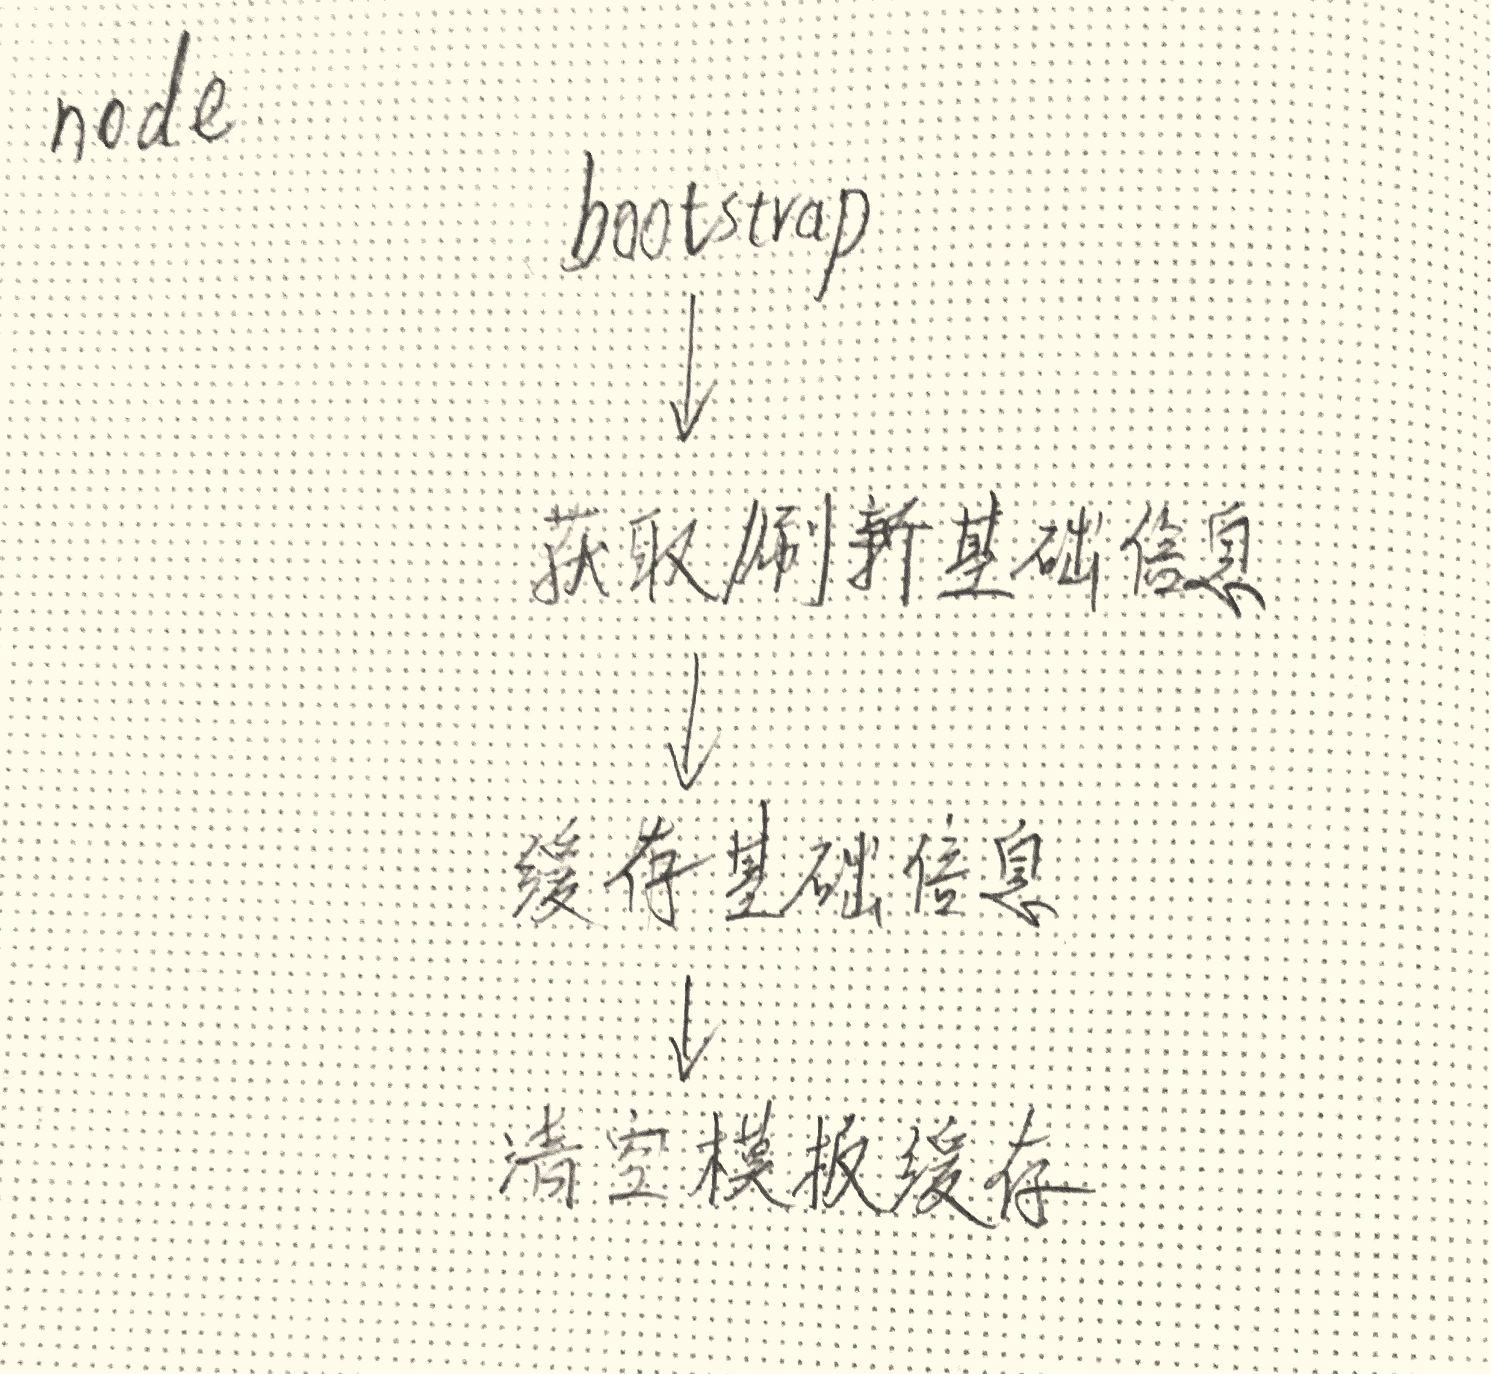 node
bootstrap
获取/刷新基础信息
缓存基础信息
清空模板缓存